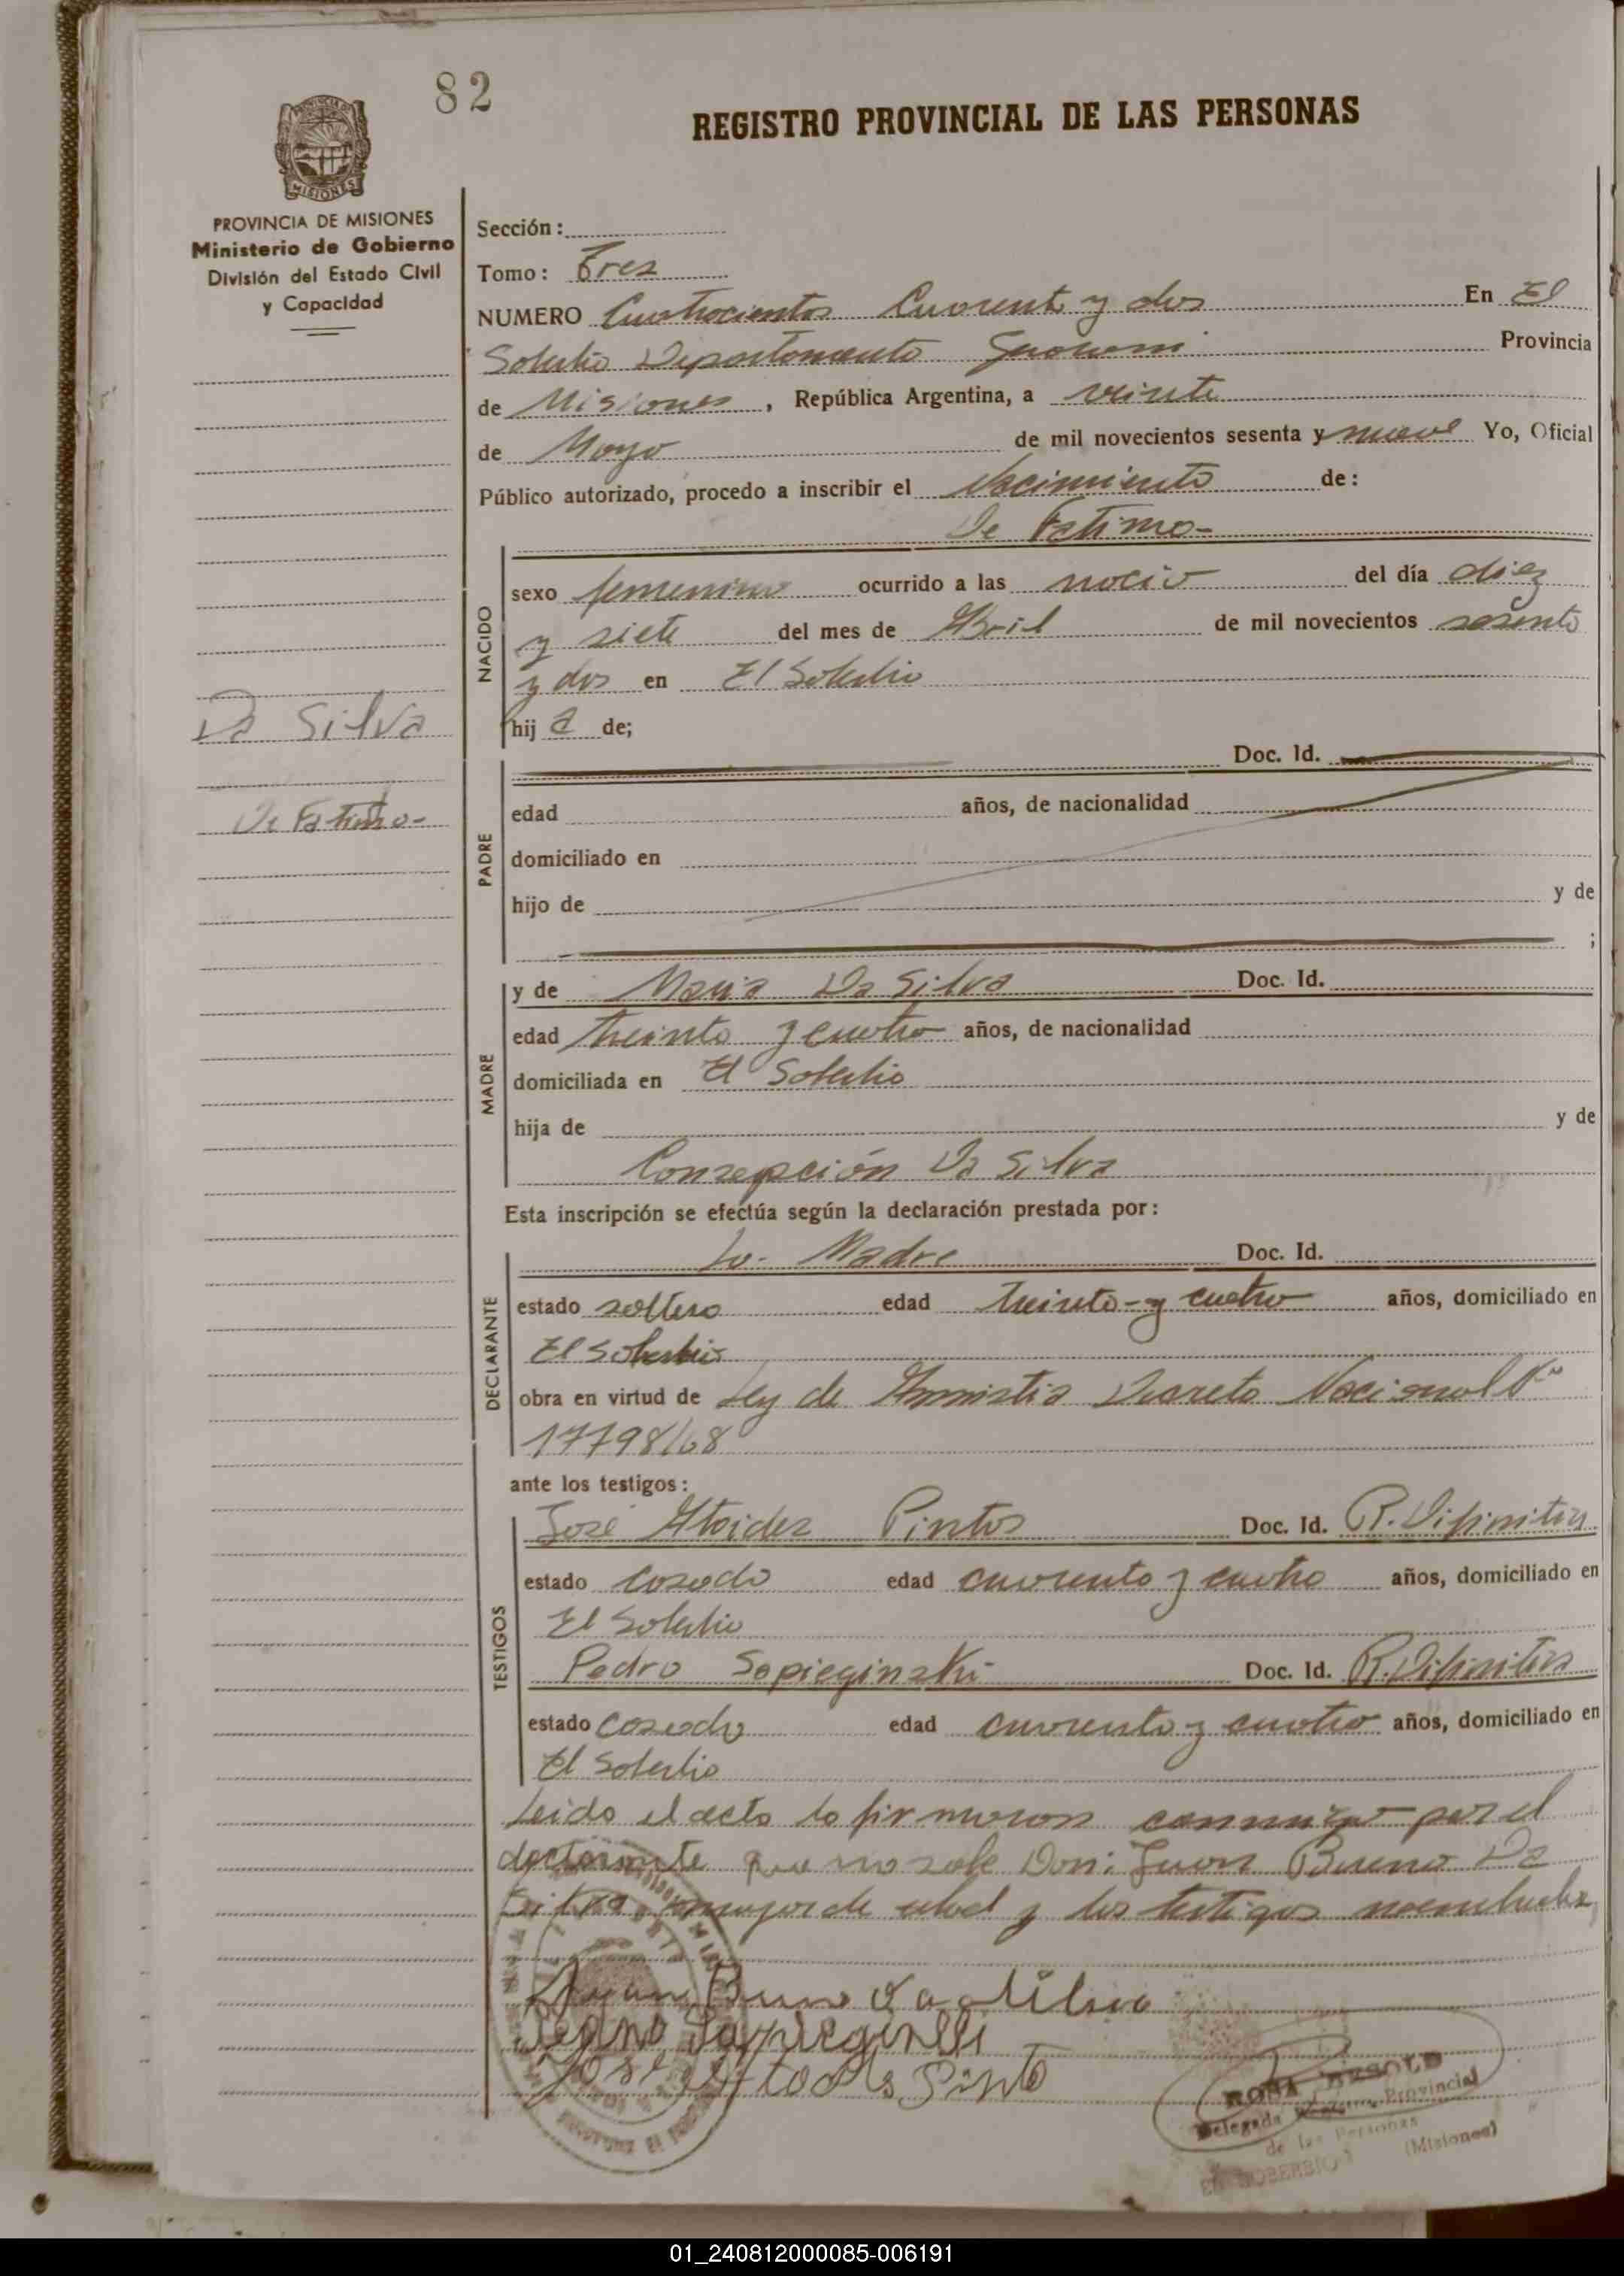 82
REGISTRO PROVINCIAL DE LAS PERSONAS
PROVINCIA DE MISIONES
Ministerio de Gobierno
División del Estado Civil
y Capacidad
Sección:
Tomo: Tres
NUMERO Cuatrocientos Cuarenta y dos En El
Soberbio Departamento Guarani Provincia
de Misiones, República Argentina, a veinte
de Mayo de mil novecientos sesenta y nueve Yo, Oficial
Público autorizado, procedo a inscribir el Nacimiento de:
De Fatima-
NACIDO
sexo femenino ocurrido a las nació del día diez
y siete del mes de Abril de mil novecientos sesenta
y dos en El Soberbio
hij a de;
Da Silva
De Fatima-
PADRE
Doc. Id.
edad años, de nacionalidad
domiciliado en
hijo de y de
;
MADRE
y de Maria Da Silva Doc. Id.
edad treinta y cuatro años, de nacionalidad
domiciliada en El Soberbio
hija de y de
Consepción Da Silva
Esta inscripción se efectúa según la declaración prestada por:
DECLARANTE
La Madre Doc. Id.
estado soltera edad treinta y cuatro años, domiciliado en
El Soberbio
obra en virtud de Ley de Amnistia Decreto Nacional Nº
17798/68
ante los testigos:
TESTIGOS
José Pintos Doc. Id. R.
estado Casado edad cuarenta y cuatro años, domiciliado en
El Soberbio
Pedro Sapieginski Doc. Id. R.
estado Casado edad cuarenta y cuatro años, domiciliado en
El Soberbio
Leida el acta la firmaron conmigo por el
declarante que no sabe Don: Juan Bueno Da
Silva mayor de edad y los testigos
Juan Bueno da Silva
Pedro
José Pinto
ROSA
Delegada Registro Provincial
de las Personas
EL SOBERBIO (Misiones)
01_240812000085-006191